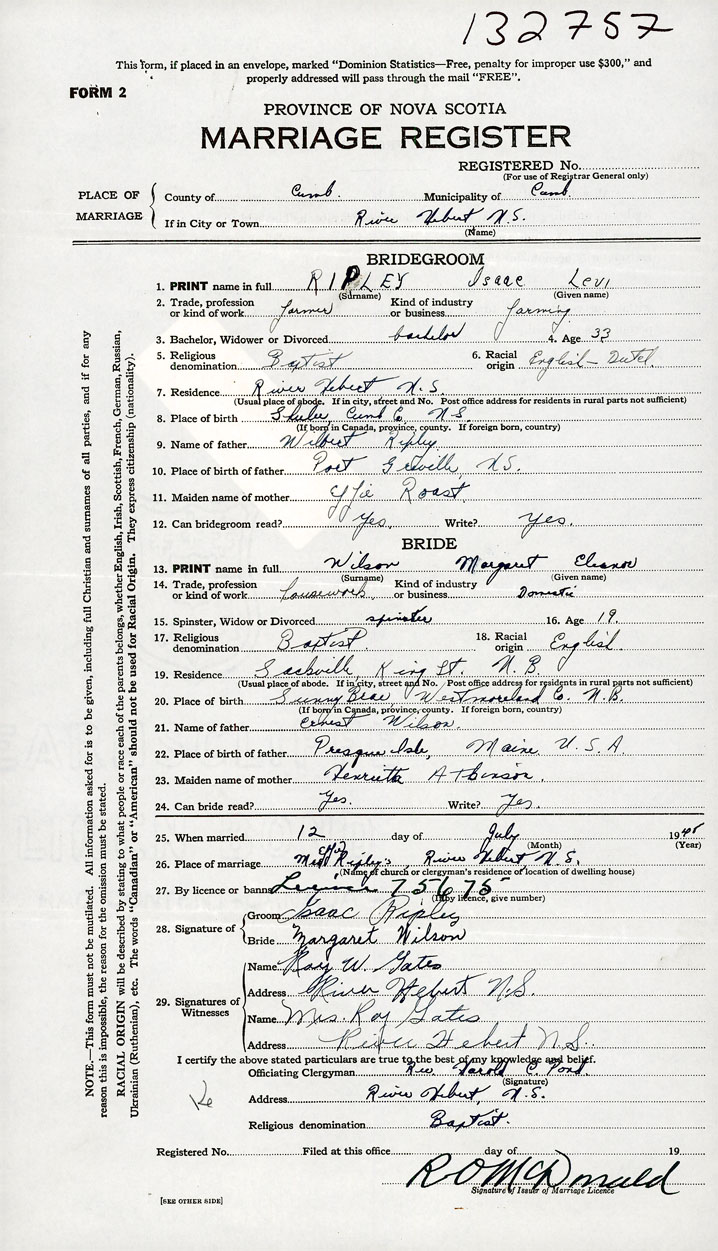 132757
This form, if placed in an envelope, marked “Dominion Statistics—Free, penalty for improper use $300,” and
properly addressed will pass through the mail “FREE”.
FORM 2
PROVINCE OF NOVA SCOTIA
MARRIAGE REGISTER
REGISTERED No.
(For use of Registrar General only)
PLACE OF MARRIAGE
County of Cumb. Municipality of Cumb.
If in City or Town River Hebert N.S.
(Name)
BRIDEGROOM
1. PRINT name in full RIPLEY Isaac Levi
(Surname) (Given name)
2. Trade, profession or kind of work farmer Kind of industry or business farming
3. Bachelor, Widower or Divorced bachelor 4. Age 33
5. Religious denomination Baptist 6. Racial origin English - Dutch
7. Residence River Hebert N.S.
(Usual place of abode. If in city, street and No. Post office address for residents in rural parts not sufficient)
8. Place of birth Shulee, Cumb Co. N.S.
(If born in Canada, province, county. If foreign born, country)
9. Name of father Wilbert Ripley
10. Place of birth of father Port Greville, N.S.
11. Maiden name of mother Effie Roast
12. Can bridegroom read? Yes. Write? Yes.
BRIDE
13. PRINT name in full Wilson Margaret Eleanor
(Surname) (Given name)
14. Trade, profession or kind of work housework Kind of industry or business Domestic
15. Spinster, Widow or Divorced spinster 16. Age 19.
17. Religious denomination Baptist. 18. Racial origin English.
19. Residence Sackville King St. N.B
(Usual place of abode. If in city, street and No. Post office address for residents in rural parts not sufficient)
20. Place of birth Sunny Brae Westmoreland Co. N.B.
(If born in Canada, province, county. If foreign born, country)
21. Name of father Ernest Wilson.
22. Place of birth of father Presque Isle, Maine U.S.A.
23. Maiden name of mother Henrietta Atkinson.
24. Can bride read? Yes. Write? Yes.
25. When married 12 day of July 1945
(Month) (Year)
26. Place of marriage Mrs Effie Ripley's River Hebert N.S.
(Name of church or clergyman's residence or location of dwelling house)
27. By licence or banns Licence 75675
(If by licence, give number)
28. Signature of
Groom Isaac Ripley
Bride Margaret Wilson
29. Signatures of Witnesses
Name Roy W. Gates
Address River Hebert N.S.
Name Mrs. Roy Gates
Address River Hebert N.S.
I certify the above stated particulars are true to the best of my knowledge and belief.
Officiating Clergyman Rev Harold C. Pond
(Signature)
Address River Hebert, N.S.
Religious denomination Baptist.
Registered No. Filed at this office day of 19
R O McDonald
Signature of Issuer of Marriage Licence
[SEE OTHER SIDE]
NOTE.—This form must not be mutilated. All information asked for is to be given, including full Christian and surnames of all parties, and if for any
reason this is impossible, the reason for the omission must be stated.
RACIAL ORIGIN will be described by stating to what people or race each of the parents belongs, whether English, Irish, Scottish, French, German, Russian,
Ukrainian (Ruthenian), etc. The words “Canadian” or “American” should not be used for Racial Origin. They express citizenship (nationality).